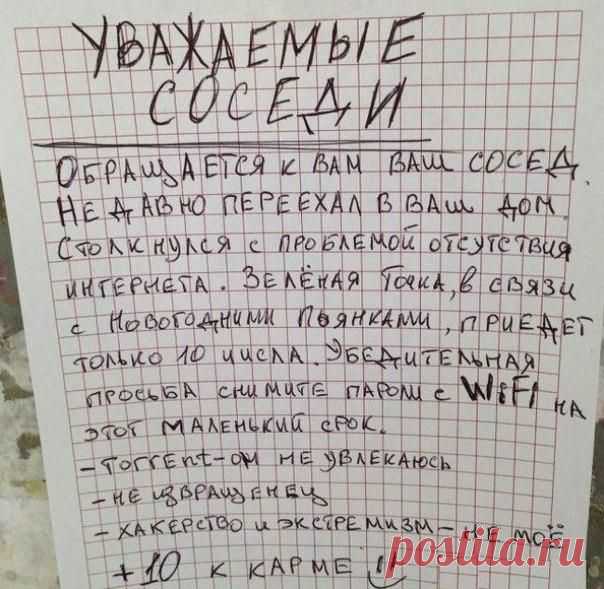 УВАЖАЕМЫЕ
СОСЕДИ
ОБРАЩАЕТСЯ К ВАМ ВАШ СОСЕД.
НЕДАВНО ПЕРЕЕХАЛ В ВАШ ДОМ.
СТОЛКНУЛСЯ С ПРОБЛЕМОЙ ОТСУТСТВИЯ
ИНТЕРНЕТА. ЗЕЛЁНАЯ ТОЧКА, В СВЯЗИ
С НОВОГОДНИМИ ПЬЯНКАМИ, ПРИЕДЕТ
ТОЛЬКО 10 ЧИСЛА. УБЕДИТЕЛЬНАЯ
ПРОСЬБА СНИМИТЕ ПАРОЛИ С WiFi НА
ЭТОТ МАЛЕНЬКИЙ СРОК.
- TORRENT-ОМ НЕ УВЛЕКАЮСЬ
- НЕ ИЗВРАЩЕНЕЦ
- ХАКЕРСТВО И ЭКСТРЕМИЗМ - НЕ МОЁ
+10 К КАРМЕ
postila.ru